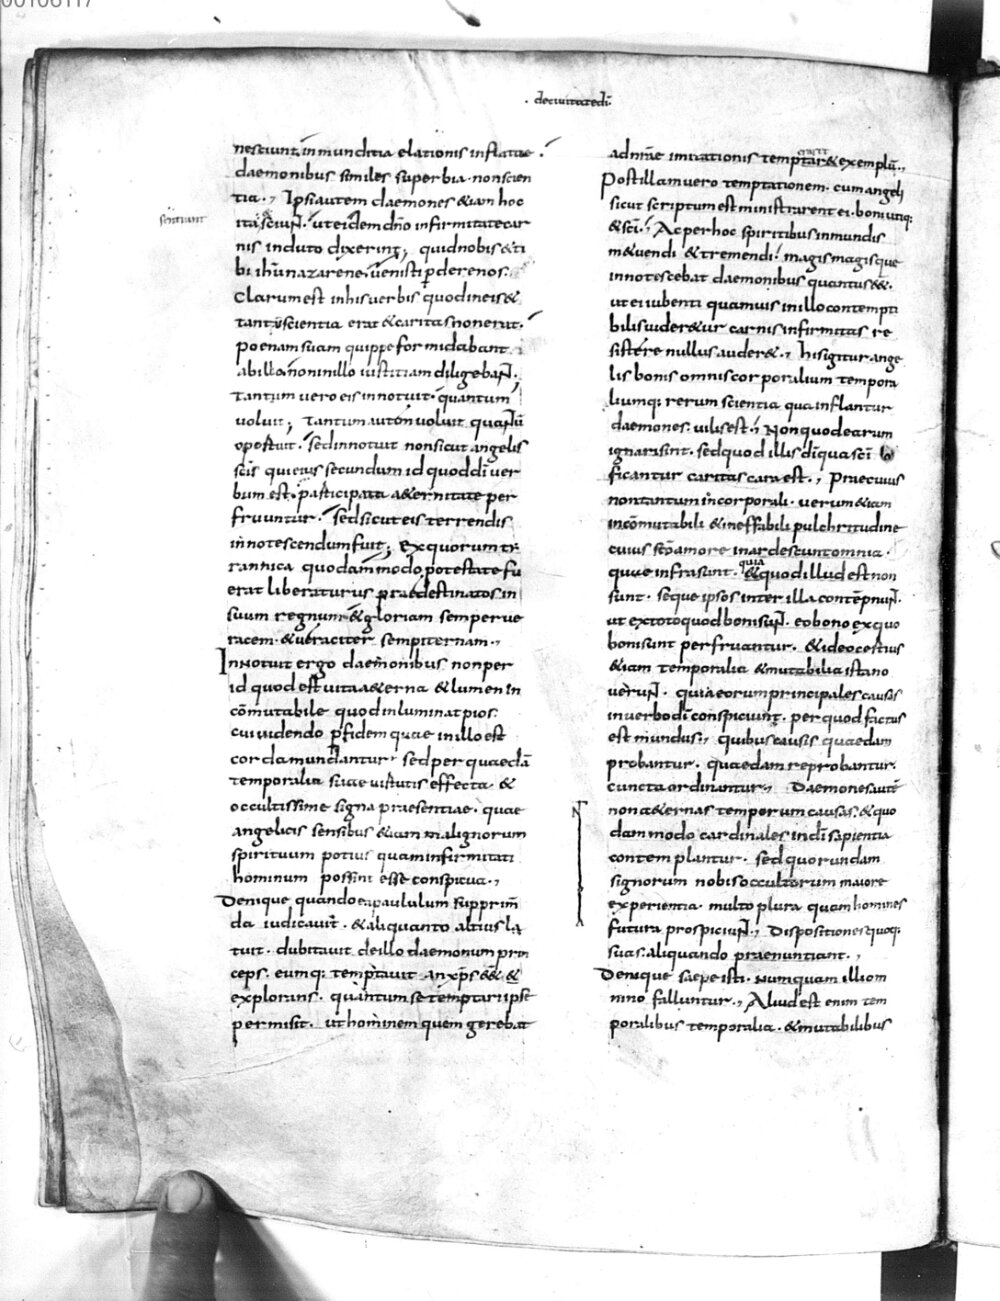 00106117
. deciuitatedi.
nesciunt, inmunditia elationis inflatae.
daemonibus similes superbia. nonscien
tia., Ipsi autem daemones &iam hoc
sentiunt
ita sciunt. ut eidem dno infirmitate car
nis induto dixerint; quidnobis &ti
bi ihu nazarene. uenisti perderenos.
Clarum est inhis uerbis quod ineis &
tanta scientia erat & caritas non erat.
poenam suam quippe formidabant
ab illo. non in illo iustitiam diligebant.
Tantum uero eis innotuit. quantum
uoluit; Tantum autem uoluit. quantu
oportuit. sed innotuit non sicut angelis
scis qui eius secundum id quod di uer
bum est. participata aeternitate per
fruuntur. sed sicut eis terrendis
innotescendum fuit; ex quorum ty
rannica quodammodo potestate fu
erat liberaturus praedestinatos in
suum regnum & gloriam semper ue
racem. & ueraciter sempiternam.,
Innotuit ergo daemonibus non per
id quod est uita aeterna & lumen in
comutabile quod inluminat pios.
cui uidendo per fidem quae in illo est
corda mundantur. sed per quaeda
temporalia suae uirtutis effecta. &
occultissime signa praesentiae. quae
angelicis sensibus &iam malignorum
spirituum potius quam infirmitati
hominum possint esse conspicua.,
Denique quando ea paululum supprim
da iudicauit. & aliquanto altius la
tuit. dubitauit de illo daemonum prin
ceps. eumq: temptauit an xps ess& &
explorans. quantum se temptari ipse
permisit. ut hominem quem gerebat
ad nrae imitationis temptar& exemplu.,
Post illam uero temptationem. cum angeli
sicut scriptum est ministrarent ei. boni utiq:
& sci. Ac per hoc spiritibus inmundis
m&uendi & tremendi. magis magisque
innotescebat daemonibus quantus e&.
ut ei iubenti quamuis in illo contempti
bilis uider&ur carnis infirmitas re
sistere nullus auder&., his igitur ange
lis bonis omnis corporalium tempora
liumq: rerum scientia qua inflantur
daemones. uilis est. Non quod earum
ignari sint. sed quod illis di qua sci
ficantur caritas cara est., Prae cuius
non tantum incorporali. uerum &iam
incomutabili & ineffabili pulchritudine
cuius sco amore inardescunt omnia.
quia
quae infra sunt. & quod illud est non
sunt. se que ipsos inter illa contepnunt.
ut ex toto quod boni sunt. eo bono ex quo
boni sunt perfruantur. & ideo certius
&iam temporalia & mutabilia ista no
uerunt. quia eorum principales causas
in uerbo di conspiciunt. per quod factus
est mundus., quibus causis quaedam
probantur. quaedam reprobantur.
cuncta ordinantur., Daemones aute
non a&ernas temporum causas. & quo
dam modo cardinales in di sapientia
contemplantur. sed quorundam
signorum nobis occultorum maiore
experientia. multo plura quam homines
futura prospiciunt., Dispositiones quoq:
suas. aliquando praenuntiant.,
Denique saepe isti. numquam illi om
nino falluntur., Aliud est enim tem
poralibus temporalia. & mutabilibus